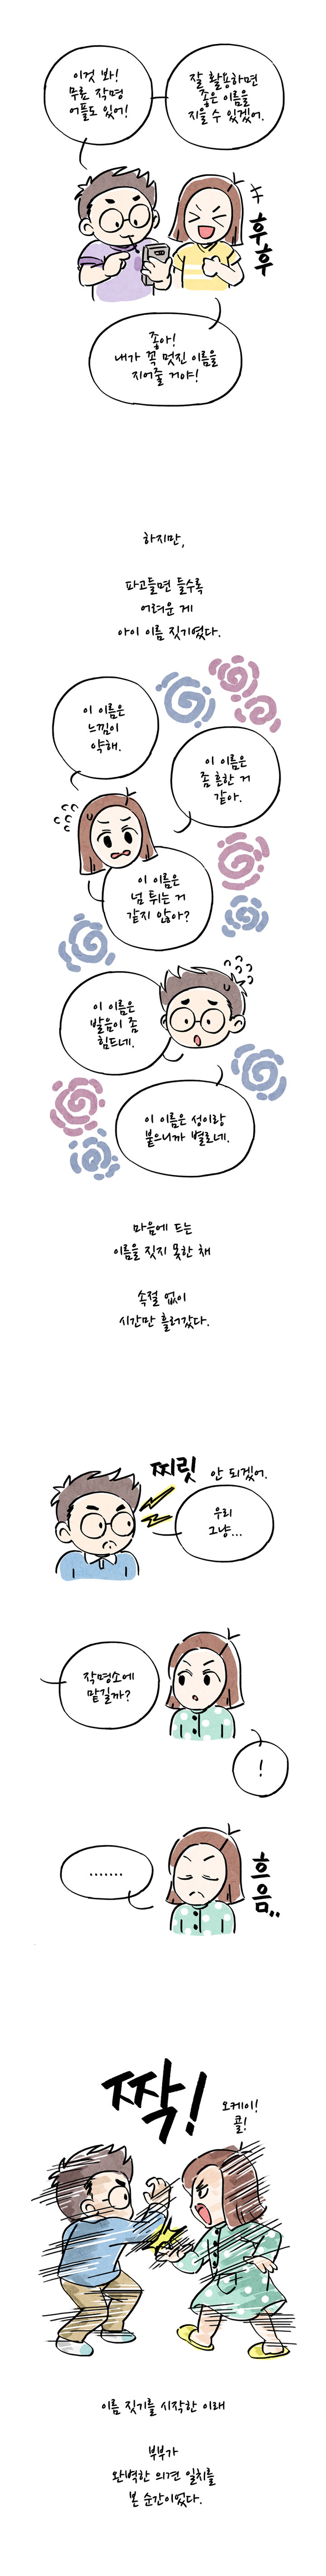 이것 봐!
무료 작명
어플도 있어!
잘 활용하면
좋은 이름을
지을 수 있겠어.
후후
좋아!
내가 꼭 멋진 이름을
지어줄 거야!
하지만,
파고들면 들수록
어려운 게
아이 이름 짓기였다.
이 이름은
느낌이
약해.
이 이름은
좀 흔한 거
같아.
이 이름은
넘 튀는 거
같지 않아?
이 이름은
발음이 좀
힘드네.
이 이름은 성이랑
붙으니까 별로네.
마음에 드는
이름을 짓지 못한 채
속절 없이
시간만 흘러갔다.
찌릿
안 되겠어.
우리
그냥...
작명소에
맡길까?
!
.......
흐음..
짝!
오케이!
콜!
이름 짓기를 시작한 이래
부부가
완벽한 의견 일치를
본 순간이었다.